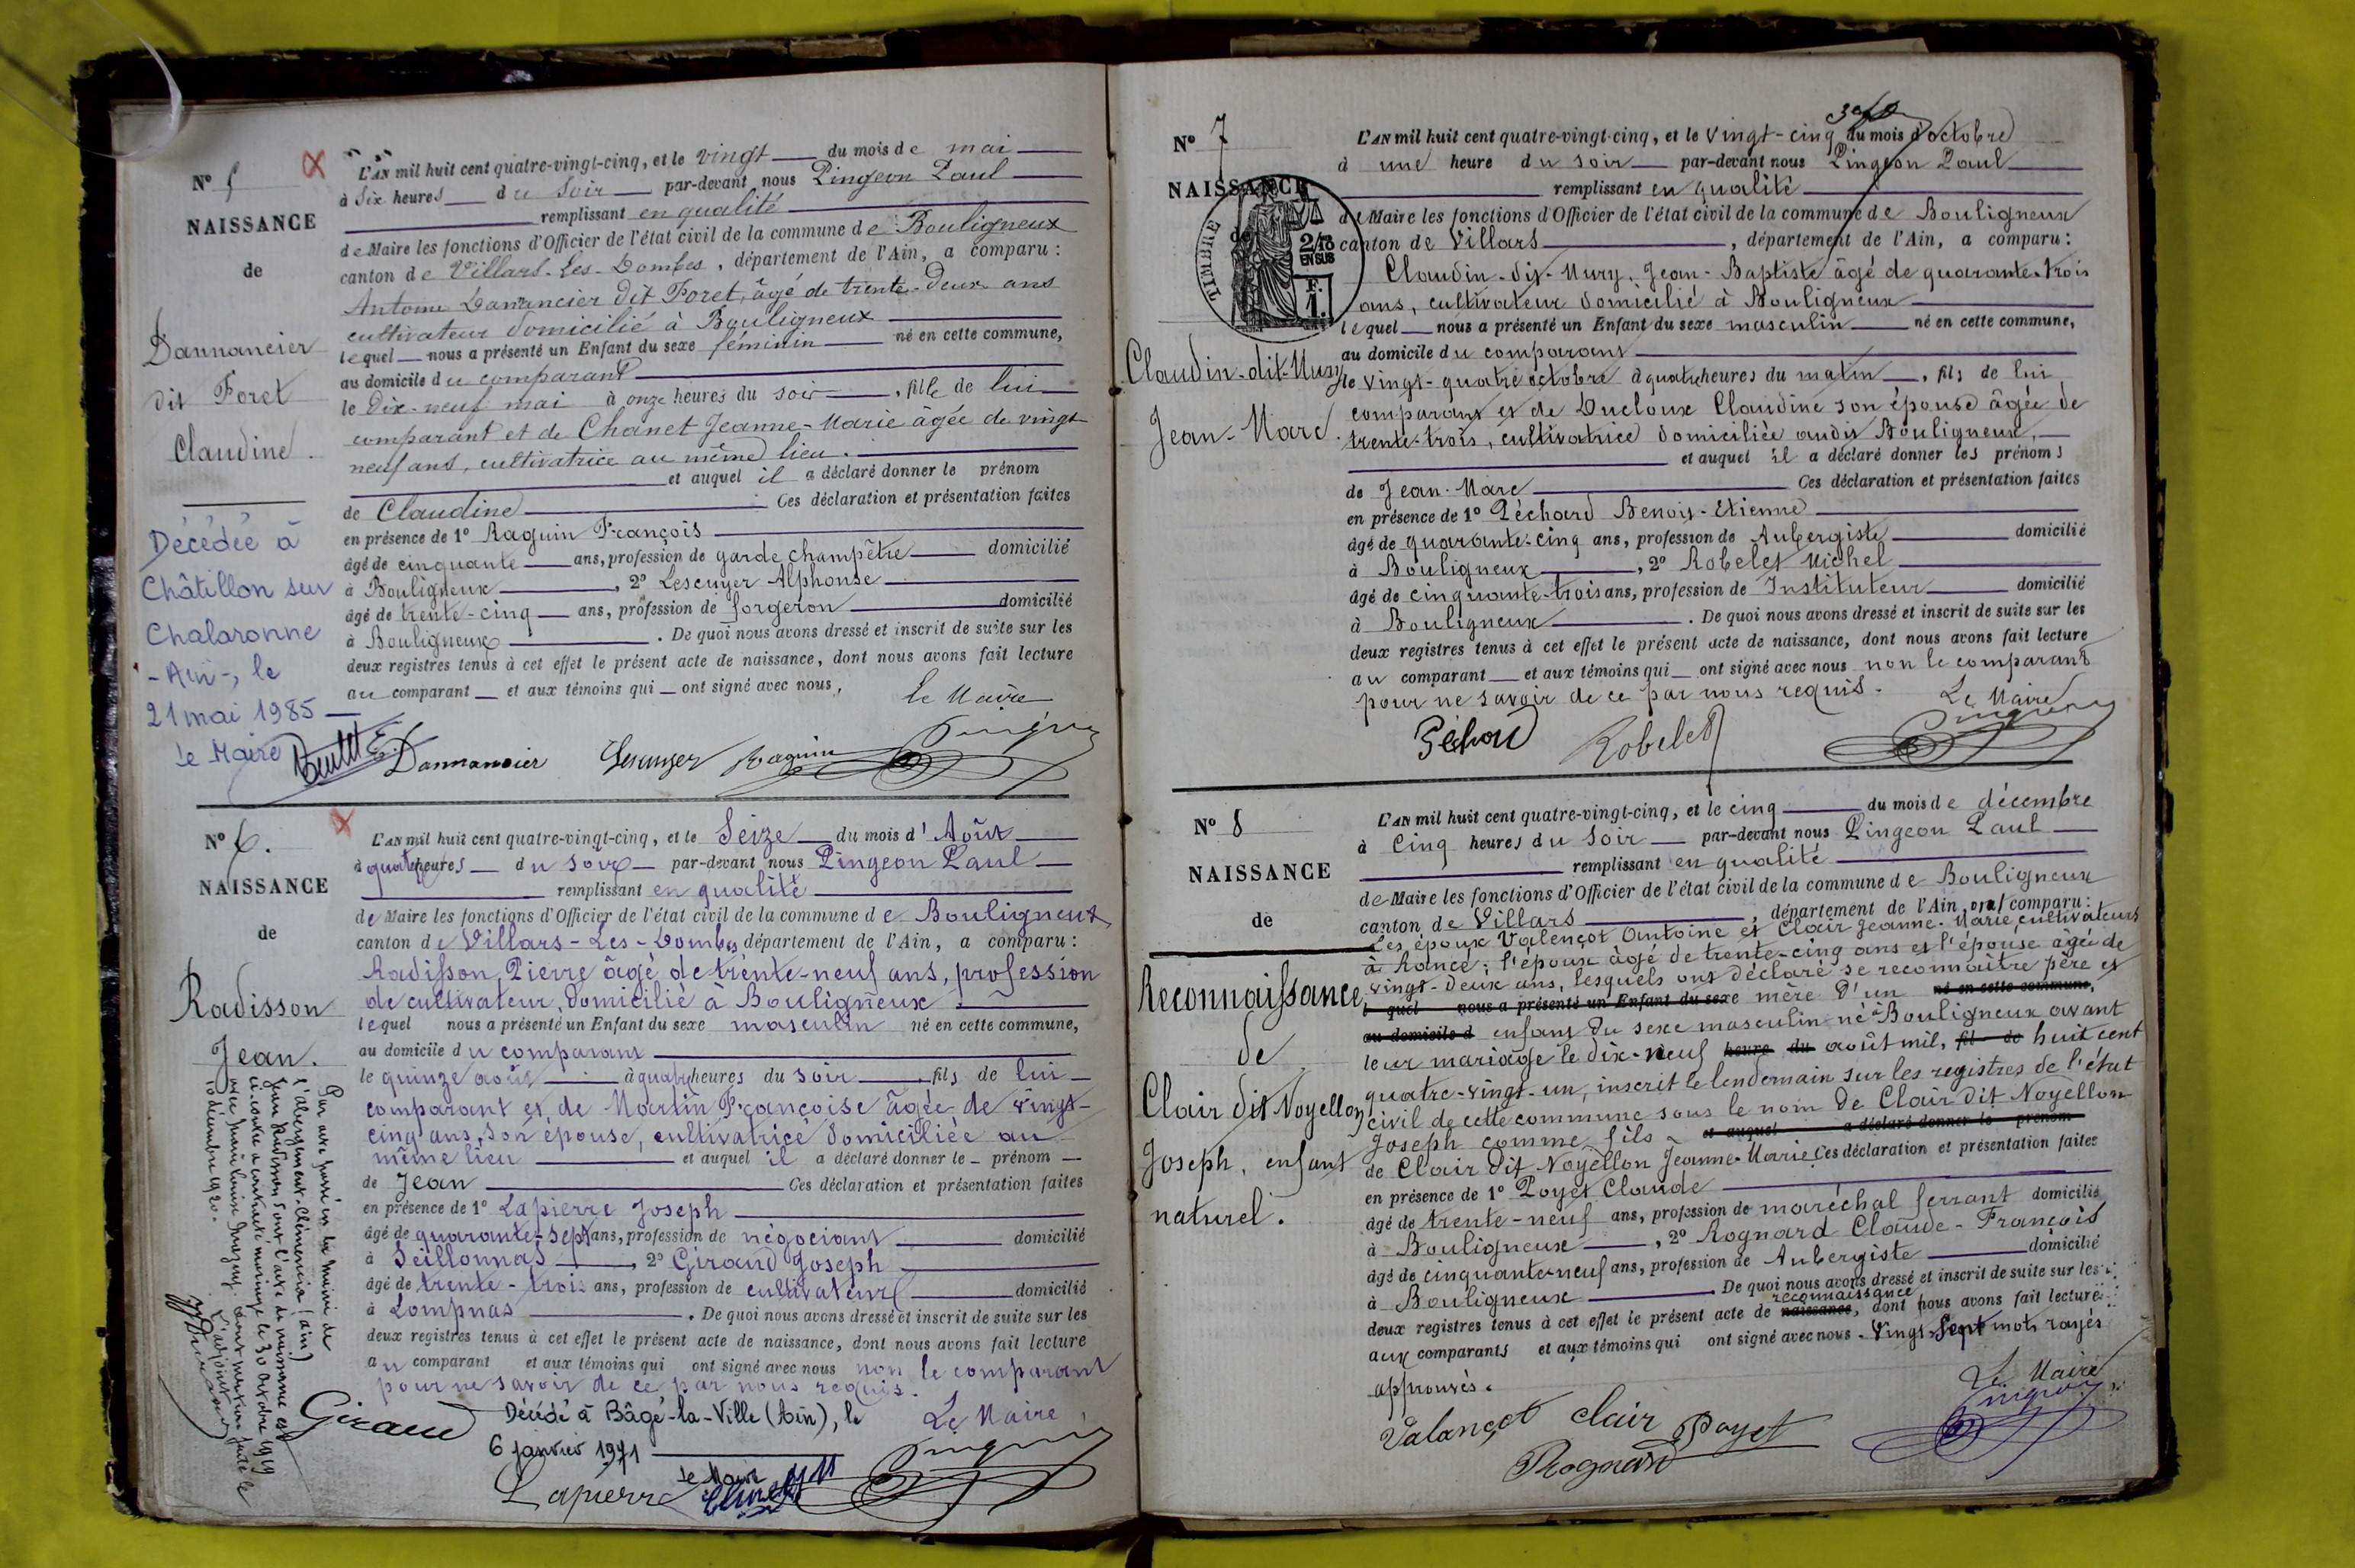 N° 5
NAISSANCE
de
Dannancier
dit Foret
Claudine.
Décédée à
Châtillon sur
Chalaronne
-Ain-, le
21 mai 1985
le Maire
L'AN mil huit cent quatre-vingt-cinq, et le vingt du mois de mai
à six heures du soir par-devant nous Pingeon Paul
remplissant en qualité
de Maire les fonctions d'Officier de l'état civil de la commune de Bouligneux
canton de Villars-Les-Dombes, département de l'Ain, a comparu :
Antoine Dannancier dit Foret, âgé de trente-deux ans
cultivateur domicilié à Bouligneux
lequel nous a présenté un Enfant du sexe féminin né en cette commune,
au domicile du comparant
le Dix-neuf mai à onze heures du soir, fille de lui
comparant et de Chanet Jeanne-Marie âgée de vingt
neuf ans, cultivatrice au même lieu.
et auquel il a déclaré donner le prénom
de Claudine. Ces déclaration et présentation faites
en présence de 1° Raguin François
âgé de cinquante ans, profession de garde champêtre domicilié
à Bouligneux, 2° Lescuyer Alphonse
âgé de trente-cinq ans, profession de forgeron domicilié
à Bouligneux. De quoi nous avons dressé et inscrit de suite sur les
deux registres tenus à cet effet le présent acte de naissance, dont nous avons fait lecture
au comparant et aux témoins qui ont signé avec nous,
Le Maire
Dannancier Lescuyer Raguin Pingeon
N° 6.
NAISSANCE
de
Radisson
Jean.
Par acte passé en la mairie de
l'abergement-Clémenciat (ain)
Jean Radisson dont l'acte de naissance est
ci-contre a contracté mariage le 30 octobre 1919
10 décembre 1920.
L'AN mil huit cent quatre-vingt-cinq, et le Seize du mois d'Août
à quatre heures du soir par-devant nous Pingeon Paul
remplissant en qualité
de Maire les fonctions d'Officier de l'état civil de la commune de Bouligneux
canton de Villars-Les-Dombes département de l'Ain, a comparu :
Radisson, Pierre âgé de trente-neuf ans, profession
de cultivateur, domicilié à Bouligneux.
lequel nous a présenté un Enfant du sexe masculin né en cette commune,
au domicile du comparant
le quinze août à quatre heures du soir, fils de lui
comparant et de Martin Françoise âgée de vingt-
cinq ans, son épouse, cultivatrice domiciliée au
même lieu et auquel il a déclaré donner le prénom
de Jean Ces déclaration et présentation faites
en présence de 1° Lapierre Joseph
âgé de quarante-sept ans, profession de négociant domicilié
à Seillonnas, 2° Giraud Joseph
âgé de trente-trois ans, profession de cultivateur domicilié
à Lompnas. De quoi nous avons dressé et inscrit de suite sur les
deux registres tenus à cet effet le présent acte de naissance, dont nous avons fait lecture
au comparant et aux témoins qui ont signé avec nous non le comparant
pour ne savoir de ce par nous requis.
Giraud
Décédé à Bâgé-la-Ville (Ain), le
6 janvier 1971
Le Maire
Le Maire,
Lapierre
Pingeon
N° 7
NAISSANCE
de
TIMBRE
2/10
EN SUS
F.
1.
Claudin-dit-Mury
Jean-Marc.
L'AN mil huit cent quatre-vingt-cinq, et le vingt-cinq du mois d'octobre
à une heure du soir par-devant nous Pingeon Paul
remplissant en qualité
de Maire les fonctions d'Officier de l'état civil de la commune de Bouligneux
canton de Villars, département de l'Ain, a comparu :
Claudin-dit-Mury, Jean-Baptiste âgé de quarante-trois
ans, cultivateur domicilié à Bouligneux
lequel nous a présenté un Enfant du sexe masculin né en cette commune,
au domicile du comparant
le vingt-quatre octobre à quatre heures du matin, fils de lui
comparant et de Ducloux Claudine son épouse âgée de
trente-trois, cultivatrice domiciliée audit Bouligneux,
et auquel il a déclaré donner les prénoms
de Jean-Marc Ces déclaration et présentation faites
en présence de 1° Péchard Benoit-Etienne
âgé de quarante-cinq ans, profession de Aubergiste domicilié
à Bouligneux, 2° Robelet Michel
âgé de cinquante-trois ans, profession de Instituteur domicilié
à Bouligneux. De quoi nous avons dressé et inscrit de suite sur les
deux registres tenus à cet effet le présent acte de naissance, dont nous avons fait lecture
au comparant et aux témoins qui ont signé avec nous non le comparant
pour ne savoir de ce par nous requis.
Le Maire
Robelet Pingeon
N° 8
NAISSANCE
de
Reconnaissance
de
Clair dit Noyellon
Joseph, enfant
naturel.
L'AN mil huit cent quatre-vingt-cinq, et le cinq du mois de décembre
à cinq heures du soir par-devant nous Pingeon Paul
remplissant en qualité
de Maire les fonctions d'Officier de l'état civil de la commune de Bouligneux
canton de Villars, département de l'Ain, ont comparu :
Les époux Valençot Antoine et Clair Jeanne-Marie, cultivateurs
à Rancé; l'époux âgé de trente-cinq ans et l'épouse âgée de
vingt-deux ans, lesquels ont déclaré se reconnaître père et
quel nous a présenté un Enfant du sexe mère d'un né en cette commune,
au domicile d enfant du sexe masculin né à Bouligneux avant
leur mariage le dix-neuf heure du août mil, fil de huit cent
quatre-vingt-un, inscrit le lendemain sur les registres de l'état
civil de cette commune sous le nom de Clair dit Noyellon
Joseph comme fils et auquel a déclaré donner le prénom
de Clair dit Noyellon Jeanne-Marie Ces déclaration et présentation faites
en présence de 1° Poyet Claude
âgé de trente-neuf ans, profession de maréchal ferrant domicilié
à Bouligneux, 2° Rognard Claude-François
âgé de cinquante-neuf ans, profession de Aubergiste domicilié
à Bouligneux. De quoi nous avons dressé et inscrit de suite sur les
reconnaissance
deux registres tenus à cet effet le présent acte de naissance, dont nous avons fait lecture
aux comparants et aux témoins qui ont signé avec nous. Vingt-Sept mots rayés
approuvés.
Le Maire
Valançot Clair Poyet Pingeon
Rognard